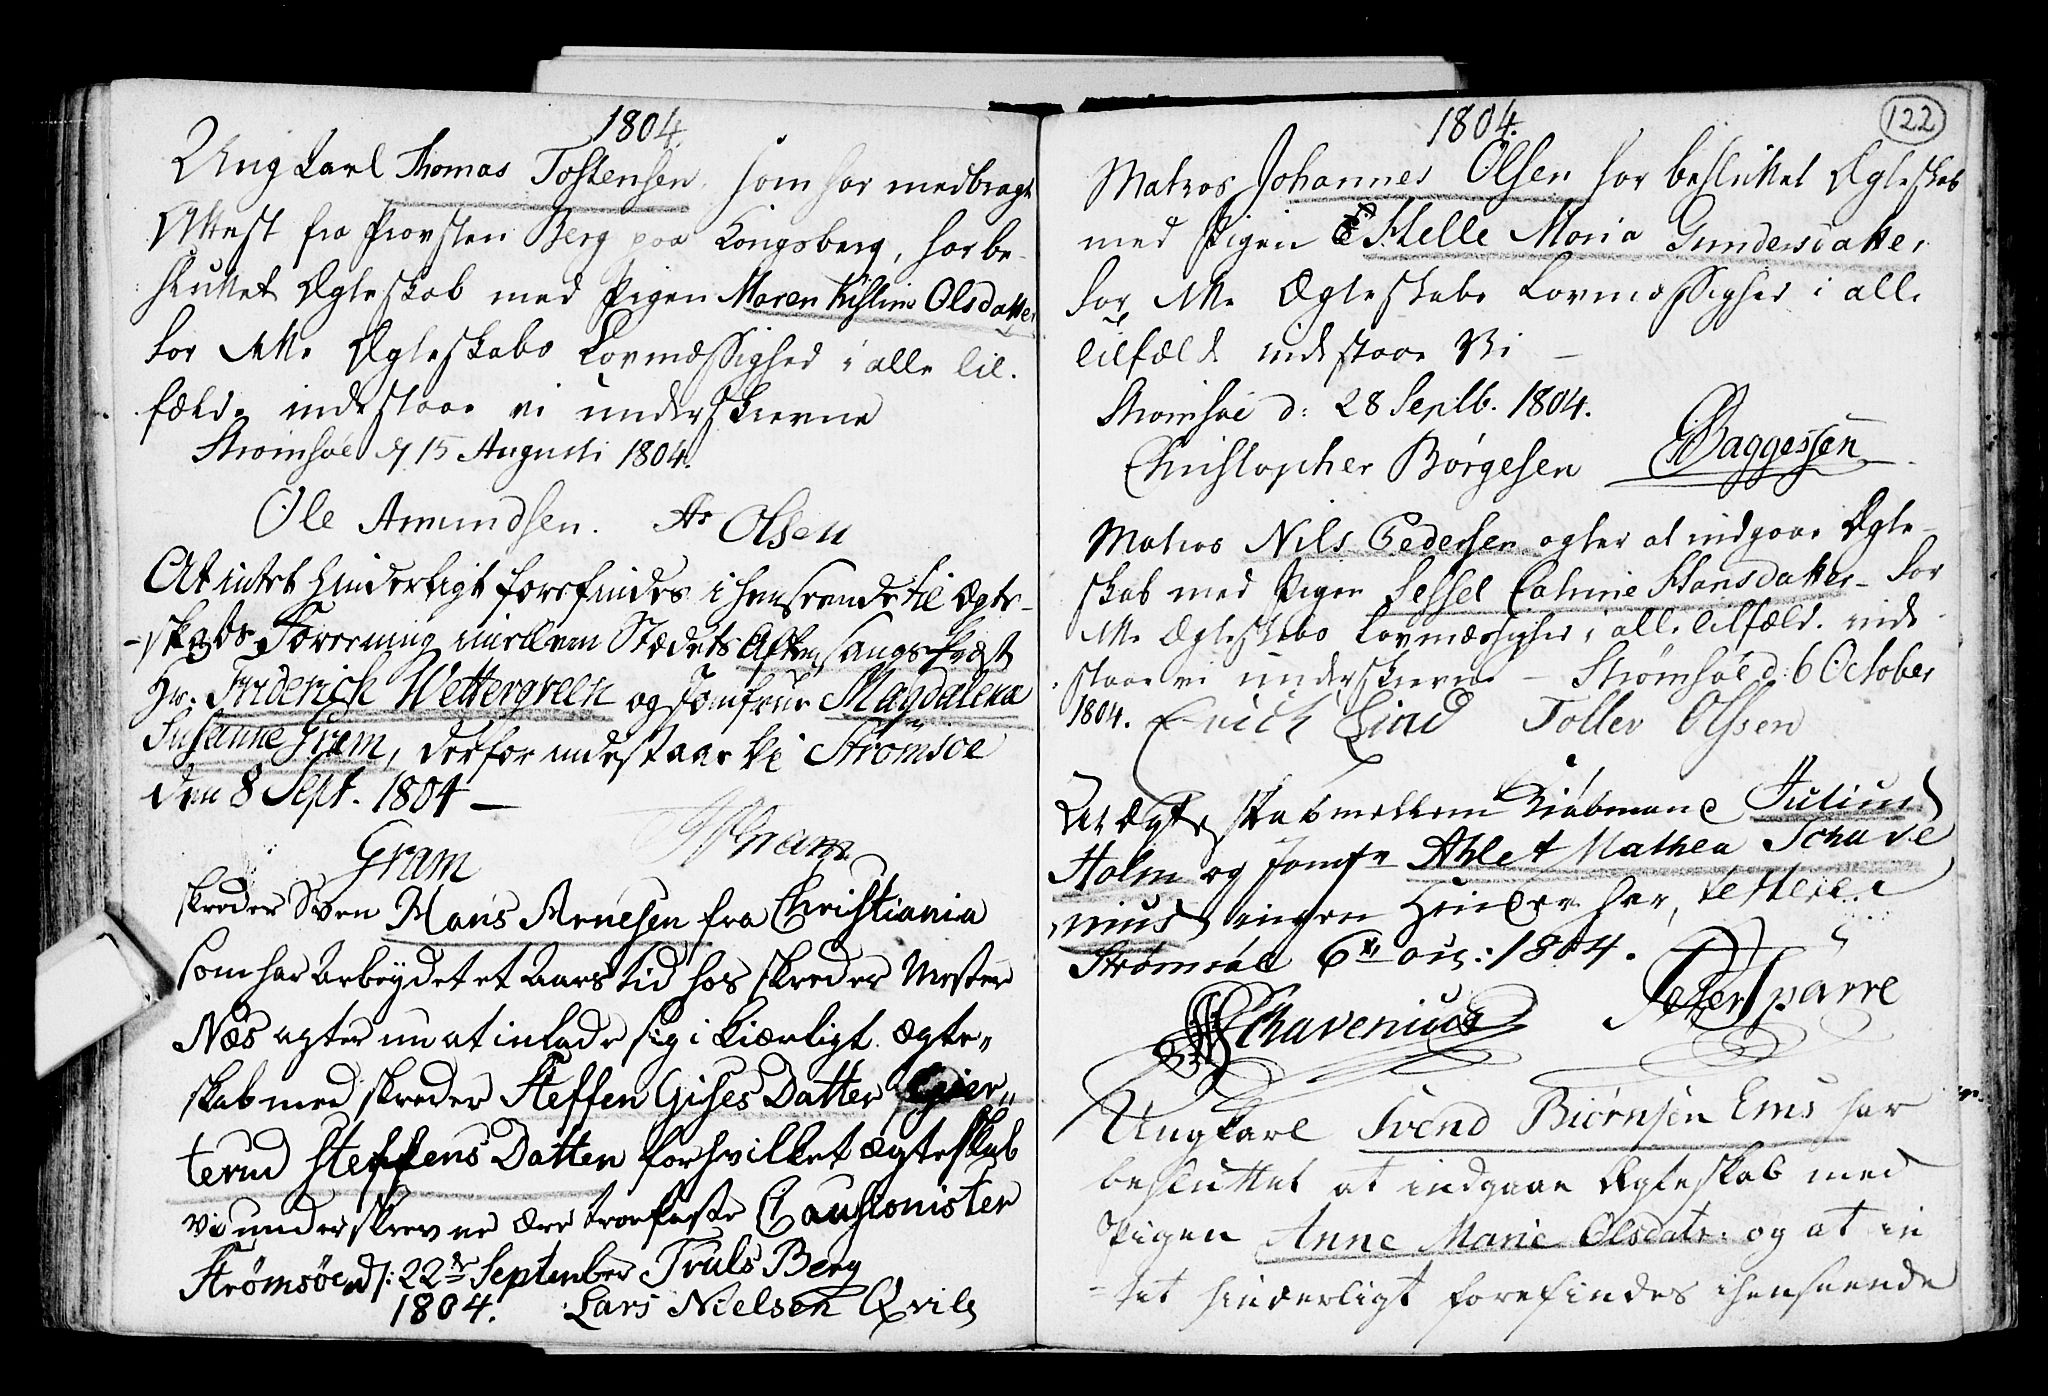 1804.
Ung Karl Thomas Tostensen, som har medbragt
Attest fra Provsten Berg paa Kongsberg, har be-
sluttet Ægteskab med Pigen Maren Kistine Olsdatter
for dette Ægteskabs Lovmæssighed i alle til-
fælde indestaae vi underskrevne
Strømsøe d 15 Augusti 1804.
Ole Amundsen. As Olsen
At intet hinderligt forefindes i henseende til Ægte-
-skabs Forening mellem Stædets Aftensangs-Præst
Hr. Friderich Wettergreen og Jomfrue Magdalena
Susanne Gram, derfor indestaae Vi Strømsöe
den 8 Sept. 1804 —
Gram Gram
skreder Sven Hans Arnesen fra Christiania
som har Arbeydet et Aars tid hos skreder Mester
Næs agter nu at inlade sig i kierligt ægte„
skab med skreder Steffen Gises Datter Gier„
terud Steffens Datter for hvilket ægteskab
vi underskrevne ere troefaste Causionister
Strømsøe d: 22de September Truls Berg
1804. Lars Nielsen Qvile
1804.
122
Matros Johannes Olsen har besluttet Ægteskab
med Pigen Helle Maria Gundersdatter,
for dette Ægteskabs Lovmæssighed i alle
tilfælde indestaae Vi —
Strømsøe d: 28 Septb. 1804.
Christopher Børgesen Baggessen
Matros Nils Pedersen agter at indgaae Ægte-
skab med Pigen Sessel Catrine Hansdatter – for
dette Ægteskabs Lovmæssighed i alle tilfælde inde
staae vi underskrevne – Strømsøe d: 6 October
1804. Erich Lind Toller Olssen
At Ægteskab mellem Kiøbmand Julius
Holm og Jomfr Ahlet Mathea Schave
nius ingen Hinder har,
Strømsøe 6te 1804.
Schavenius Peter Sparre
Ungkarl Svend Biørnsen Ems har
besluttet at indgaae Ægteskab med
Pigen Anne Marie Olsdatr. og at in
-tet hinderligt forefindes i henseende